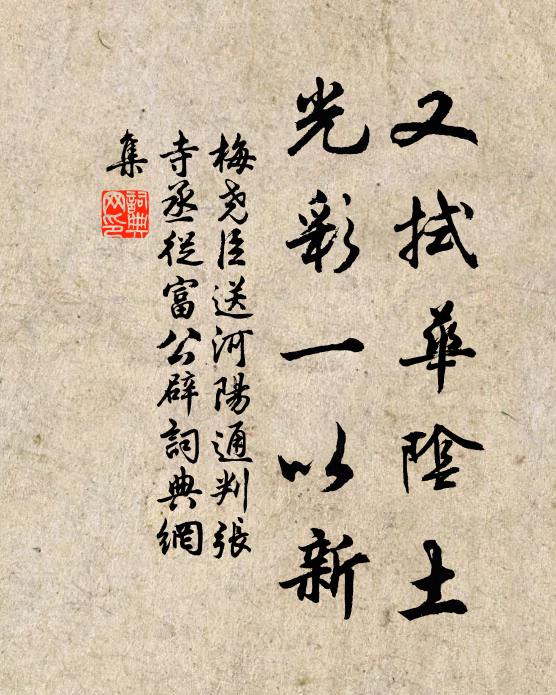 又拭華陰土
光彩一以新
梅尧臣送河陽通判張
寺丞從富公辟詞典網
集
詞典
网印